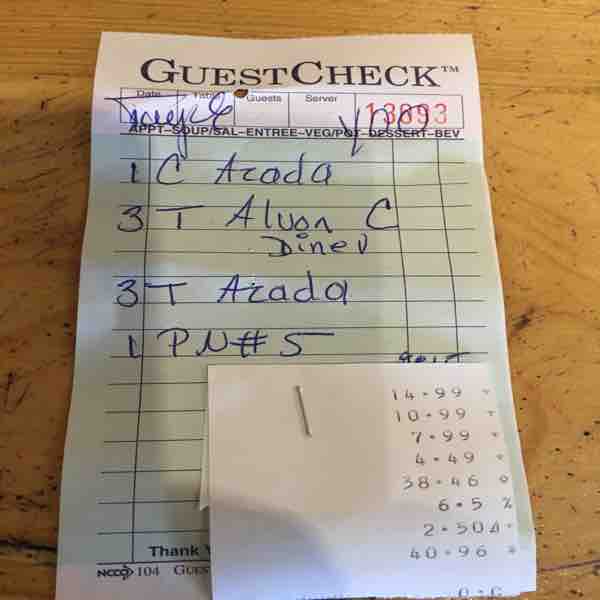 GUESTCHECK™
Date Table Guests Server
13893
APPT-SOUP/SAL-ENTREE-VEG/POT-DESSERT-BEV
1 C Azada
3 T Aluon C
Dinev
3 T Azada
1 PN#5
14.99 +
10.99 +
7.99 +
4.49 +
38.46 ◇
6.5 %
2.50Δ
40.96 *
0.C
Thank
NCCO 104 GUES